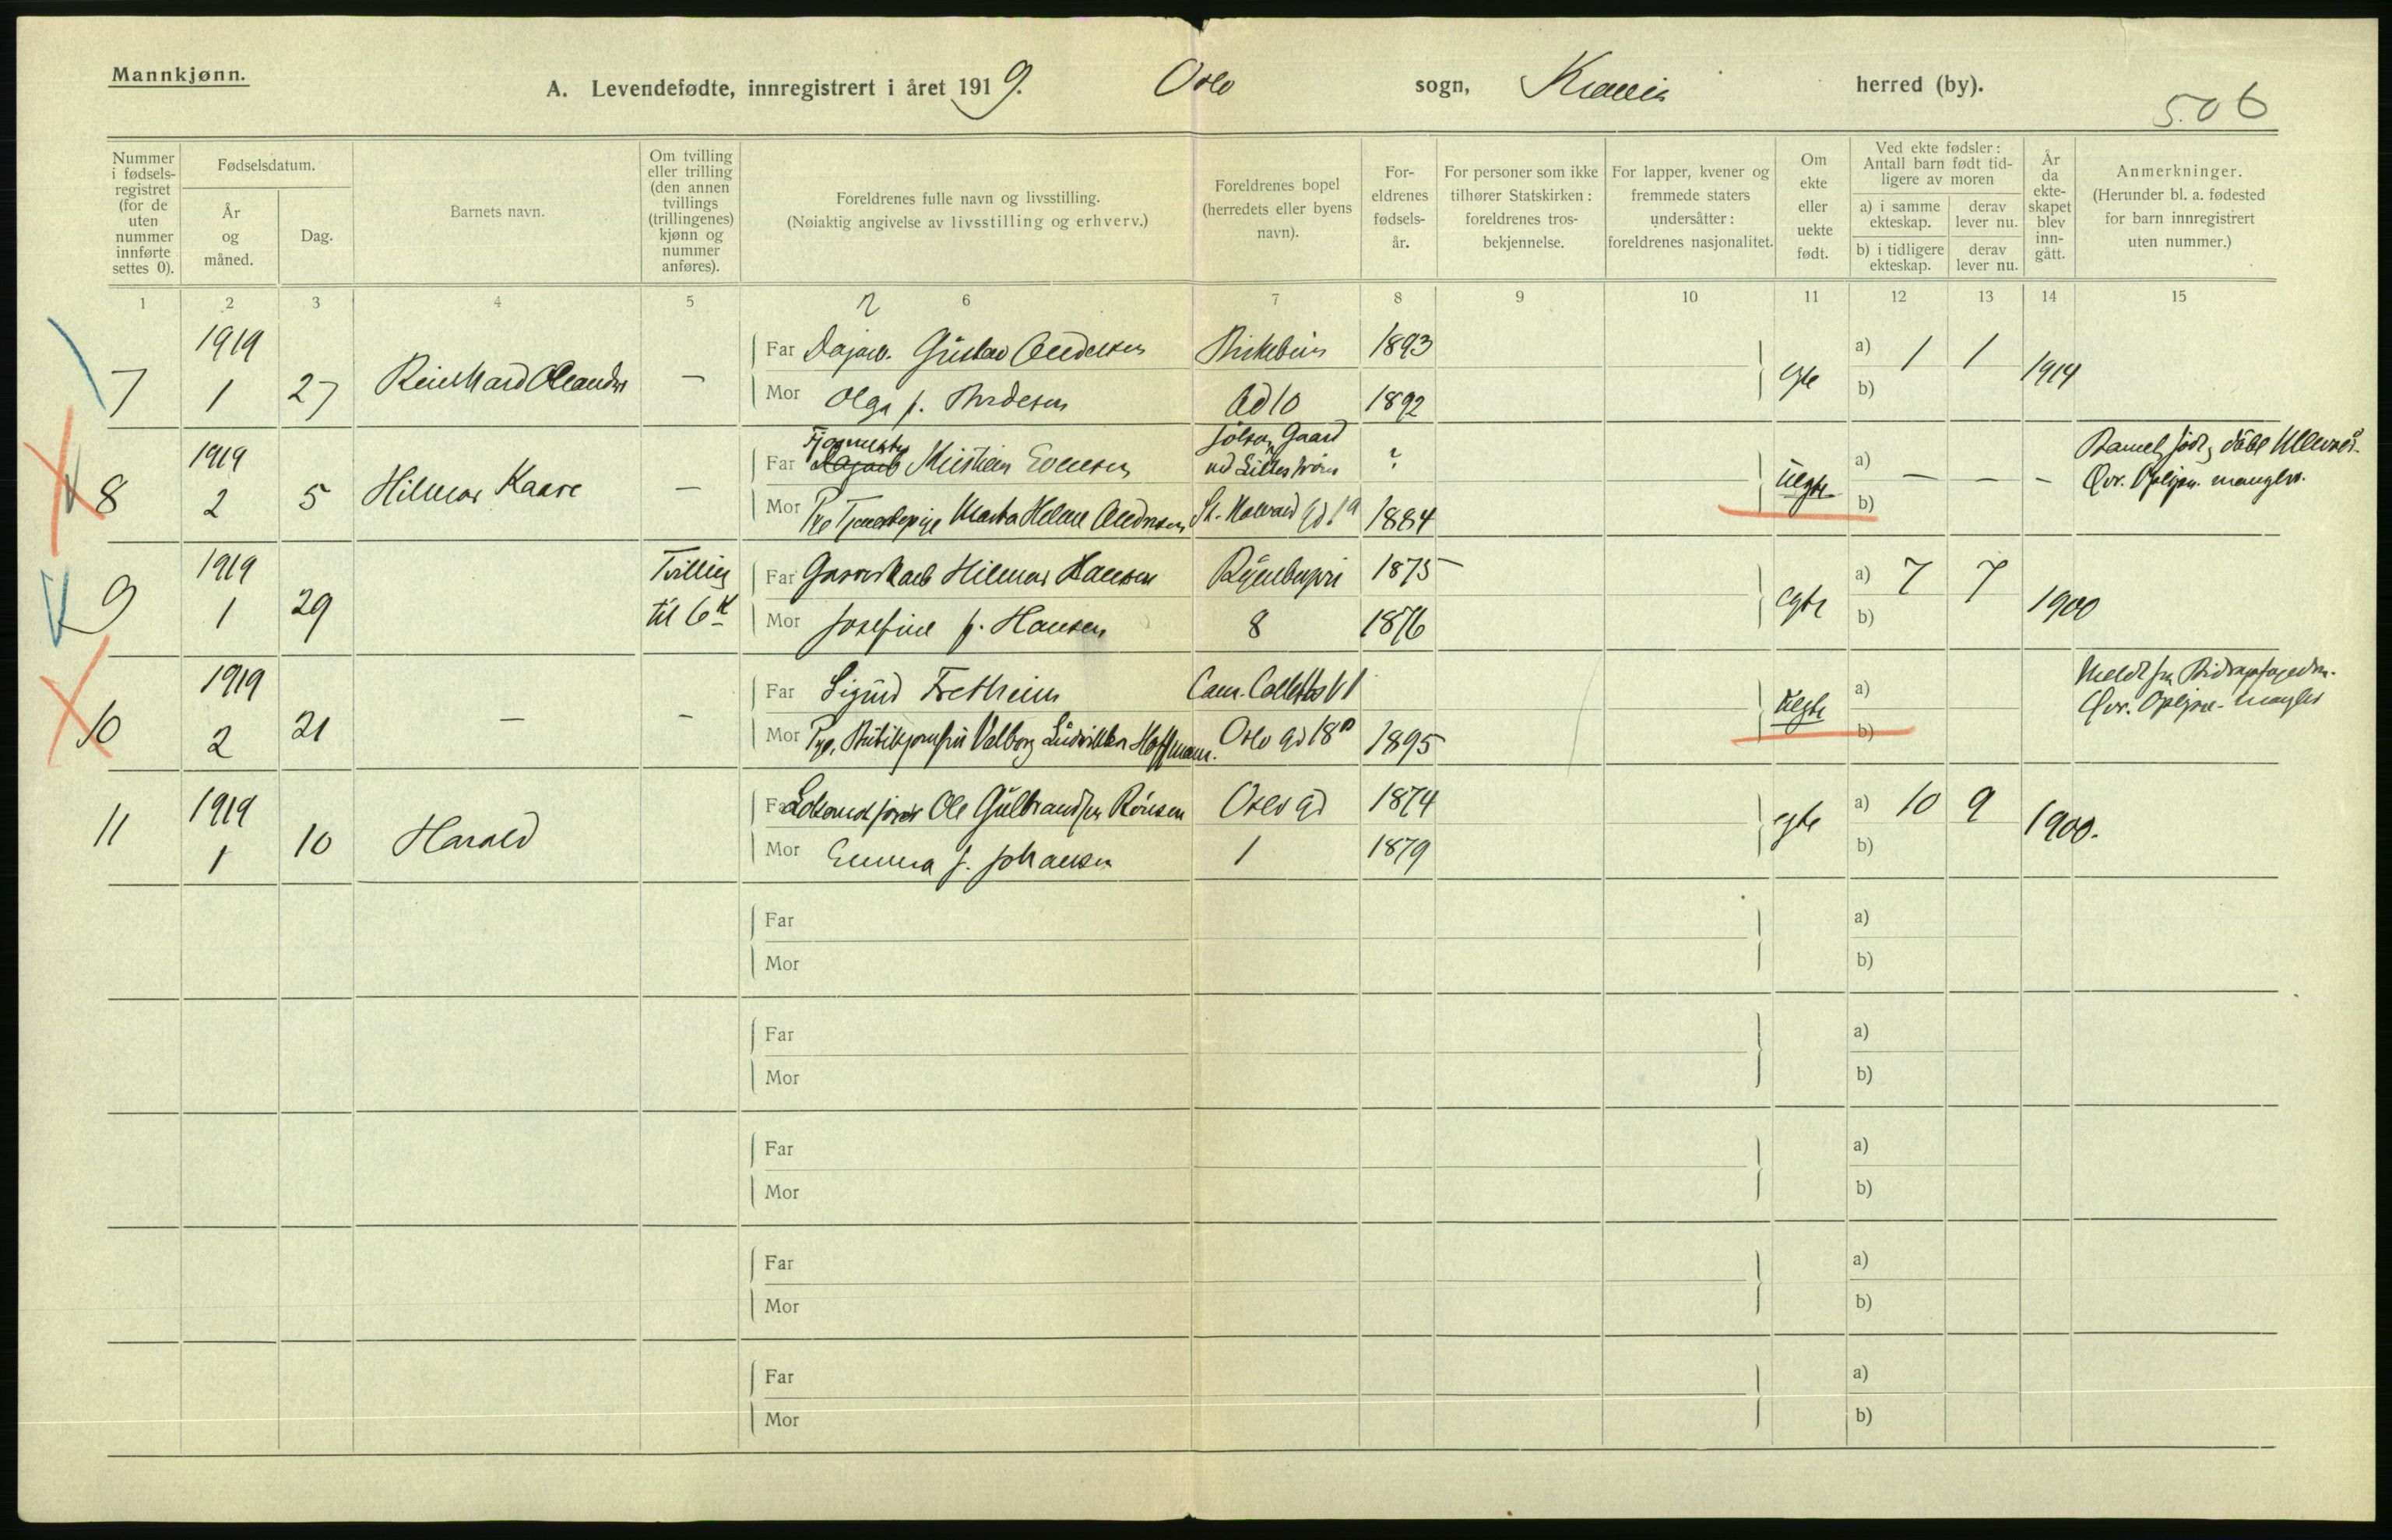 Mannkjønn.
A. Levendefødte, innregistrert i året 1919. Oslo sogn, Kr.ania herred (by).
506
Nummer i fødsels-registret (for de uten nummer innførte settes 0).
Fødselsdatum.
År og måned.
Dag.
Barnets navn.
Om tvilling eller trilling (den annen tvillings (trillingenes) kjønn og nummer anføres).
Foreldrenes fulle navn og livsstilling.
(Nøiaktig angivelse av livsstilling og erhverv.)
Foreldrenes bopel (herredets eller byens navn).
For-eldrenes fødsels-år.
For personer som ikke tilhører Statskirken: foreldrenes tros-bekjennelse.
For lapper, kvener og fremmede staters undersåtter: foreldrenes nasjonalitet.
Om ekte eller uekte født.
Ved ekte fødsler:
Antall barn født tid-ligere av moren
a) i samme ekteskap.
derav lever nu.
b) i tidligere ekteskap.
derav lever nu.
År da ekte-skapet blev inn-gått.
Anmerkninger.
(Herunder bl. a. fødested for barn innregistrert uten nummer.)
1 2 3 4 5 6 7 8 9 10 11 12 13 14 15
7 1919 1 27 Reinhard —
Far Dagarb. Gustav Andersen 1893
Mor Olga f. 10 1892
egte a) 1 1 b) 1914
8 1919 2 5 Hilmar Kaare —
Far Kristian Evensen ved Lillestrøm ?
Mor Tjenestepige Marta Helene Andresen St. Halvards Gd 1884
Uegte a) — — — b)
Barnet født, døbt
Opl. mangler.
9 1919 1 29 Tvilling til 6
Far Hilmar Hansen 1875
Mor Josefine f. Hansen 8 1876
egte a) 7 7 b) 1900
10 1919 2 21 — —
Far Sigurd Fretheim Cam. Colletts V 1
Mor Valborg Hoffmann. Oslo Gd 18 1895
Uegte a) b)
Meldt fra
mangler
11 1919 1 10 Harald
Far Ole Gulbrandsen Rønsen Oslo Gd 1874
Mor Emma f. Johansen 1 1879
egte a) 10 9 b) 1900.
Far a)
Mor b)
Far a)
Mor b)
Far a)
Mor b)
Far a)
Mor b)
Far a)
Mor b)